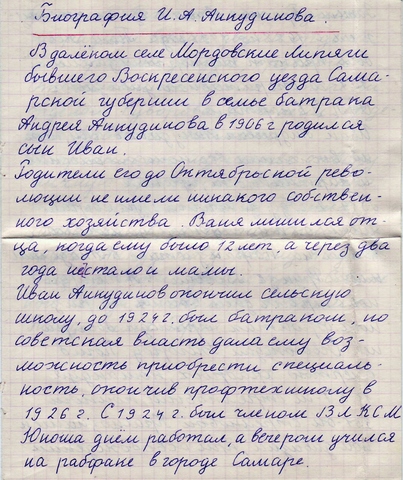 Биография И. А. Анкудинова.
В далёком селе Мордовские Липяги
бывшего Воскресенского уезда Сама-
рской губернии в семье батрака
Андрея Анкудинова в 1906 г родился
сын Иван.
Родители его до Октябрьской рево-
люции не имели никакого собствен-
ного хозяйства. Ваня лишился от-
ца, когда ему было 12 лет, а через два
года не стало и мамы.
Иван Анкудинов окончил сельскую
школу, до 1924 г. был батраком, но
советская власть дала ему воз-
можность приобрести специаль-
ность, окончив профтехшколу в
1926 г. С 1924 г. был членом ВЛКСМ
Юноша днём работал, а вечером учился
на рабфаке в городе Самаре.